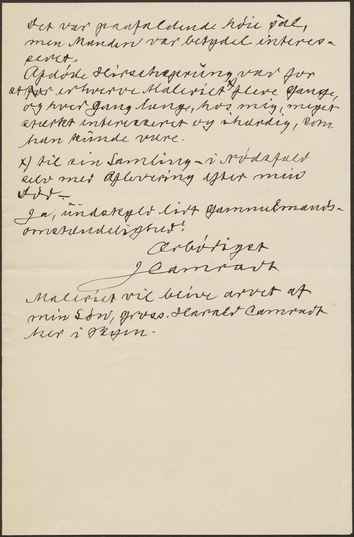 Det var paafaldende höie Tal,
men Manden var betydel interes-
seret.
Afdöde Hirschsprüng var for
at for erhverve Maleriet x) flere Gange,
og hver Gang længe, hos mig, meget
stærkt interesseret og ihærdig, som
han künde være.
x) til sin Samling – i Nödsfald
selv med Aflevering efter min
Död –
Ja, ündskyld lidt Gammelmands-
omstændelighed!
Ærbödigst
J Camradt
Maleriet vil blive arvet af
min Sön, gross. Harald Camradt
her i Byen.